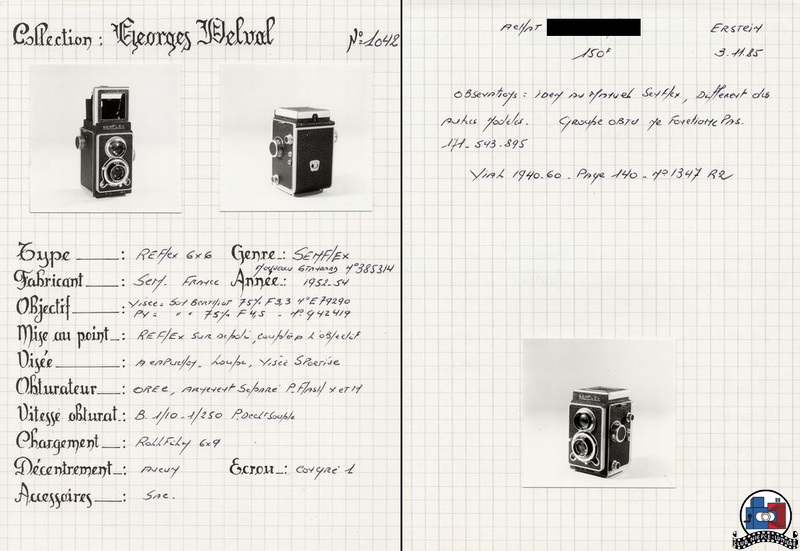 Collection : Georges Delval N° 1042
SEMFLEX
Type : REFlex 6x6 Genre : SEMFlEx
N° 385314
Fabricant : Sem. France Année : 1952-54
Objectif : Visée : Som Berthiot 75% F3,3 N° E79290
PV : " " 75% F4,5 - N° G42419
Mise au point : REFlEx sur depoli, couplée à l'objectif
Visée : A capuchon. Loupe, Visée Sportive
Obturateur : OREC, Armement Séparé P.Flash x et M
Vitesse obturat. : B. 1/10 - 1/250 P. Decl souple
Chargement : RollFilm 6x9
Décentrement : Aucun Ecrou : Congré 1
Accessoires : Sac.
AchAt ERSTEIN
150F 3.11.85
Observations : idem au Manuel SemFlex, Different des
autres Modeles. Groupe OBTU ne Fonctionne Pas.
171-543-895
Vial 1940.60 - Page 140 - n° 1347 R2